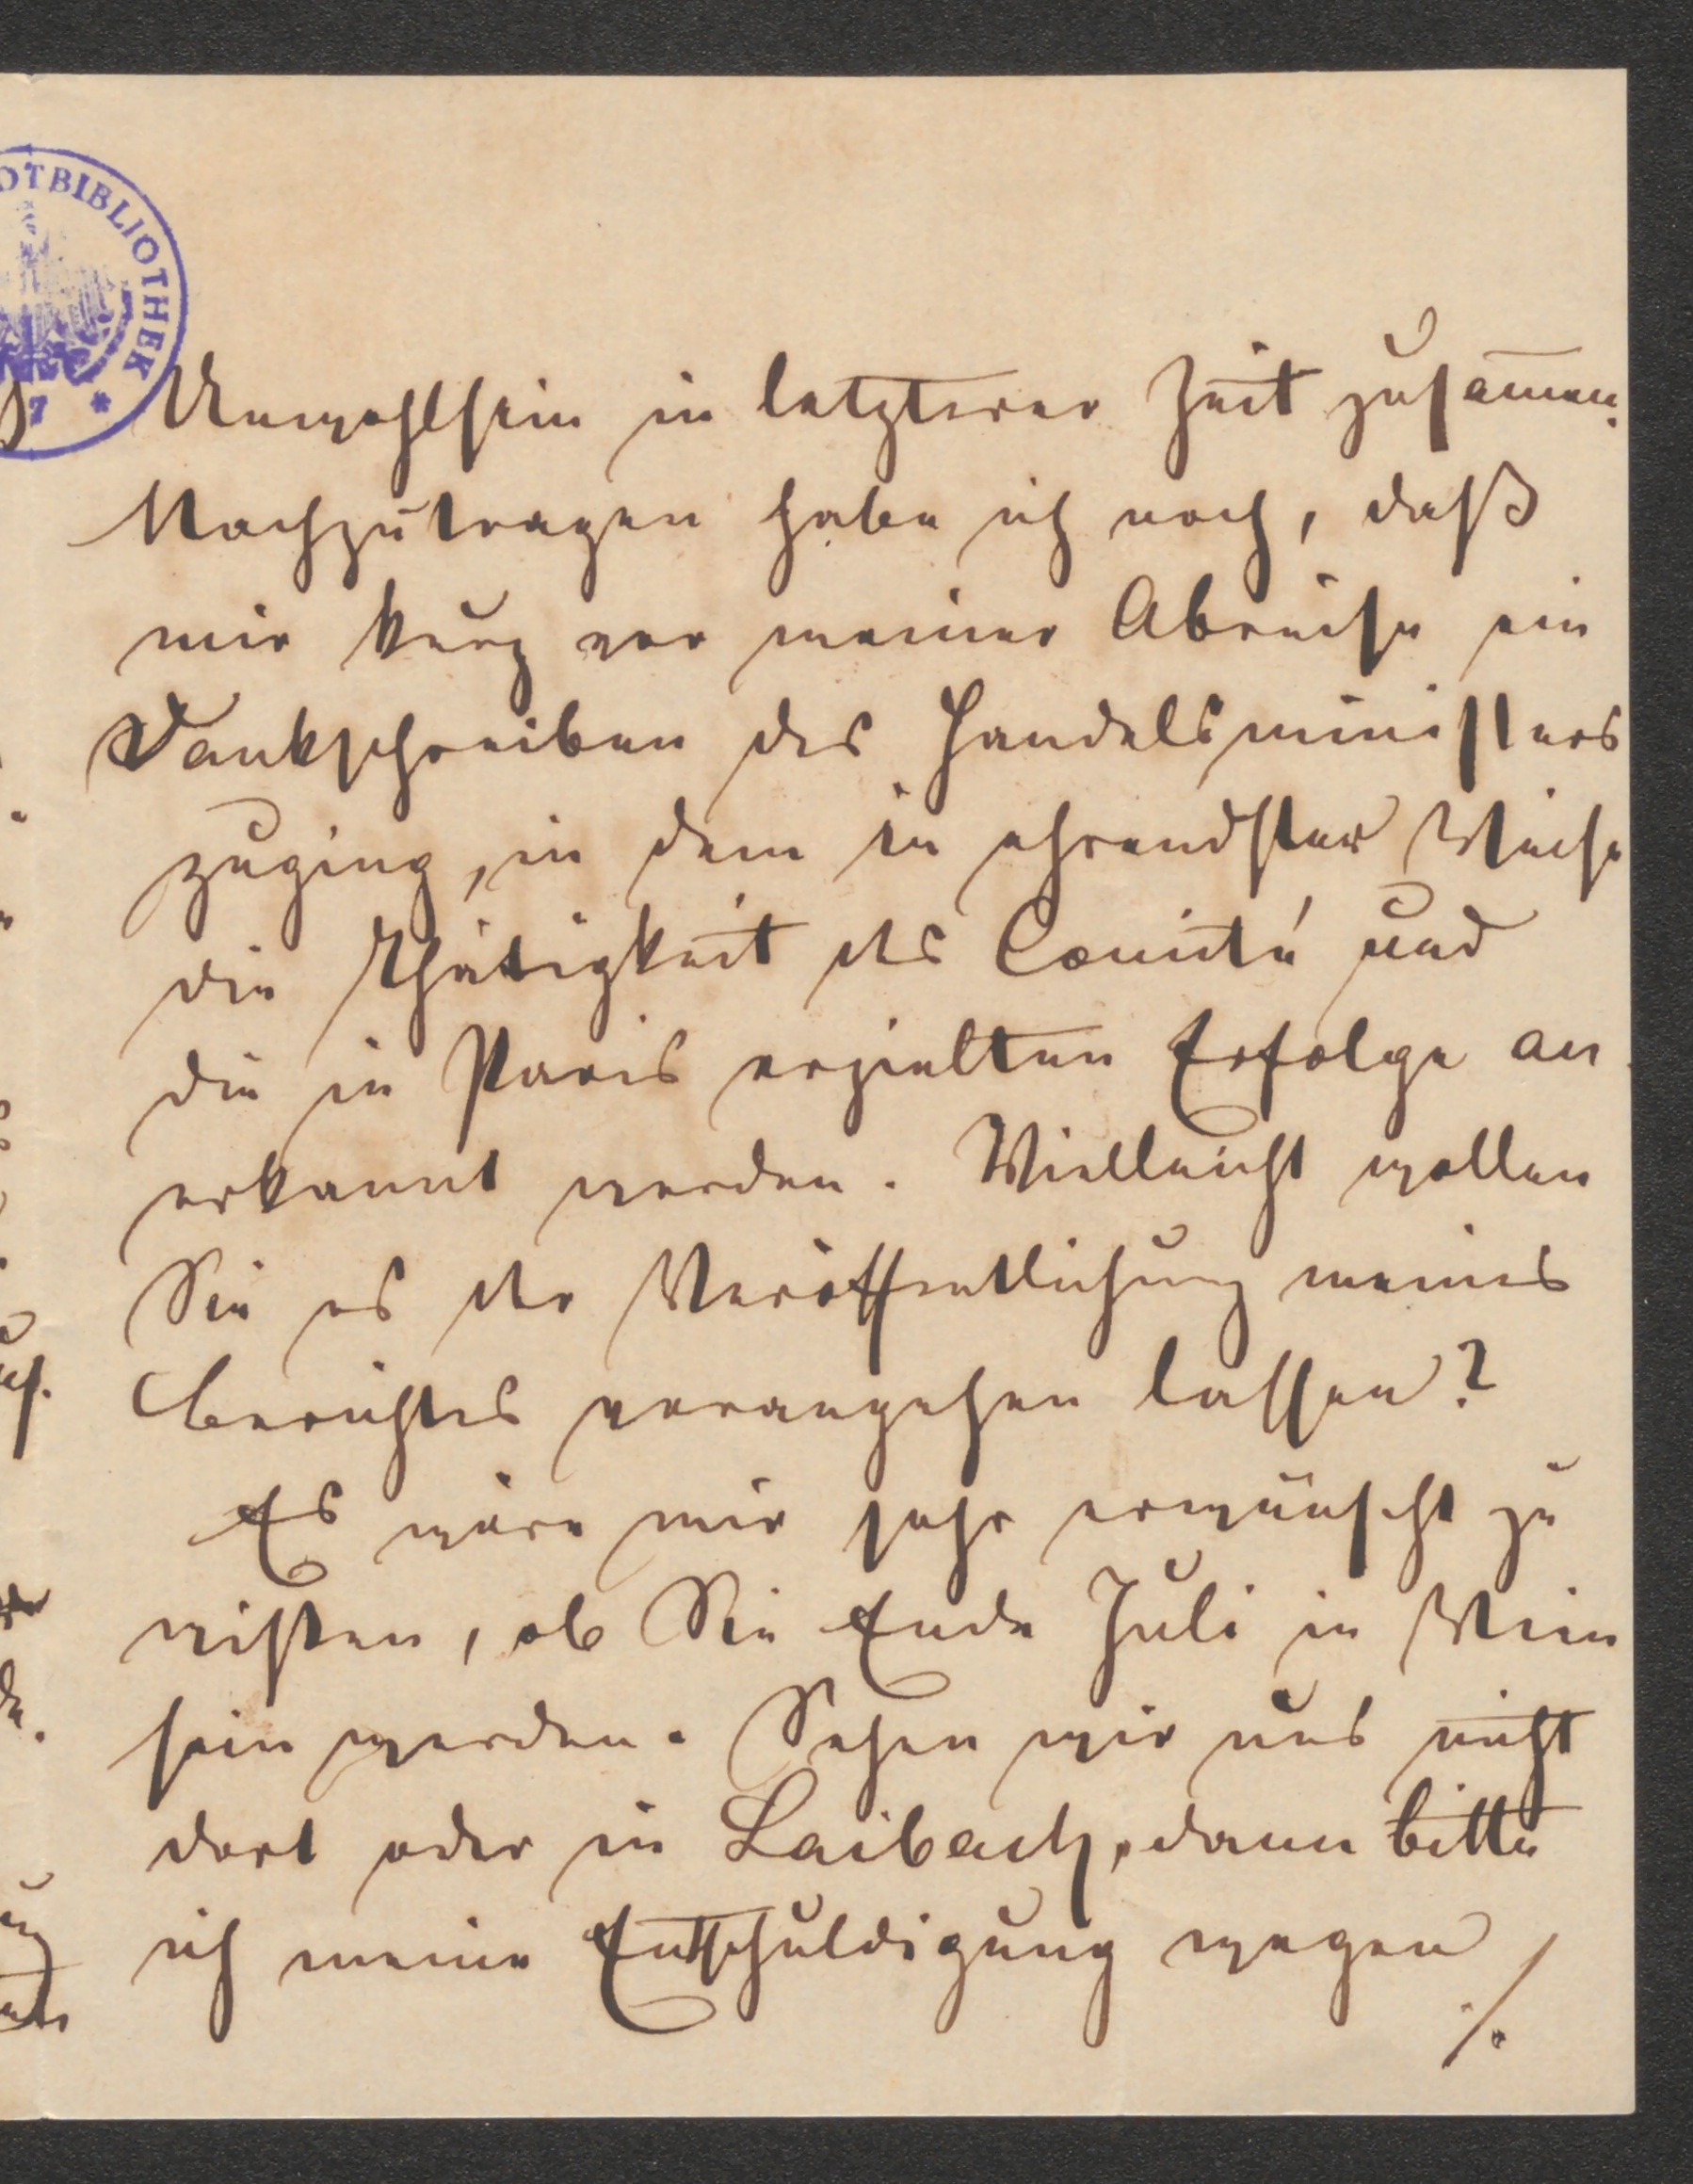 OTBIBLIOTHEK *
Unwohlsein in letzterer Zeit zusamen.
Nachzutragen habe ich noch, daß
mir kurz vor meiner Abreise ein
Dankschreiben des Handelsministers
zuging, in dem in ehrendster Weise
die Thätigkeit des Comité und
die in Paris erzielten Erfolge an
erkannt werden. Vielleicht wollen
Sie es der Veröffentlichung meines
Berichtes vorangehen lassen?
Es wäre mir sehr erwünscht zu
wissen, ob Sie Ende Juli in Wien
sein werden. Sehen wir uns nicht
dort oder in Laibach, dann bitte
ich meine Entschuldigung wegen
./.